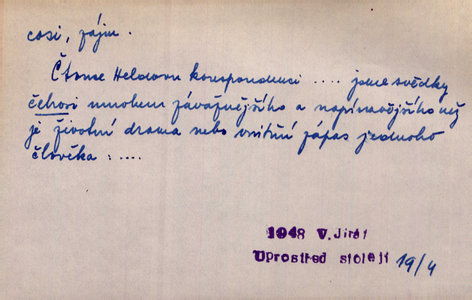 cosi, zájm.
Čtouce Helcelovu korespondenci .... jsme svědky
čehosi mnohem závažnějšího a napínavějšího než
je životní drama nebo vnitřní zápas jednoho
člověka : ....
1948 V. Jirát
Uprostřed století 19/4